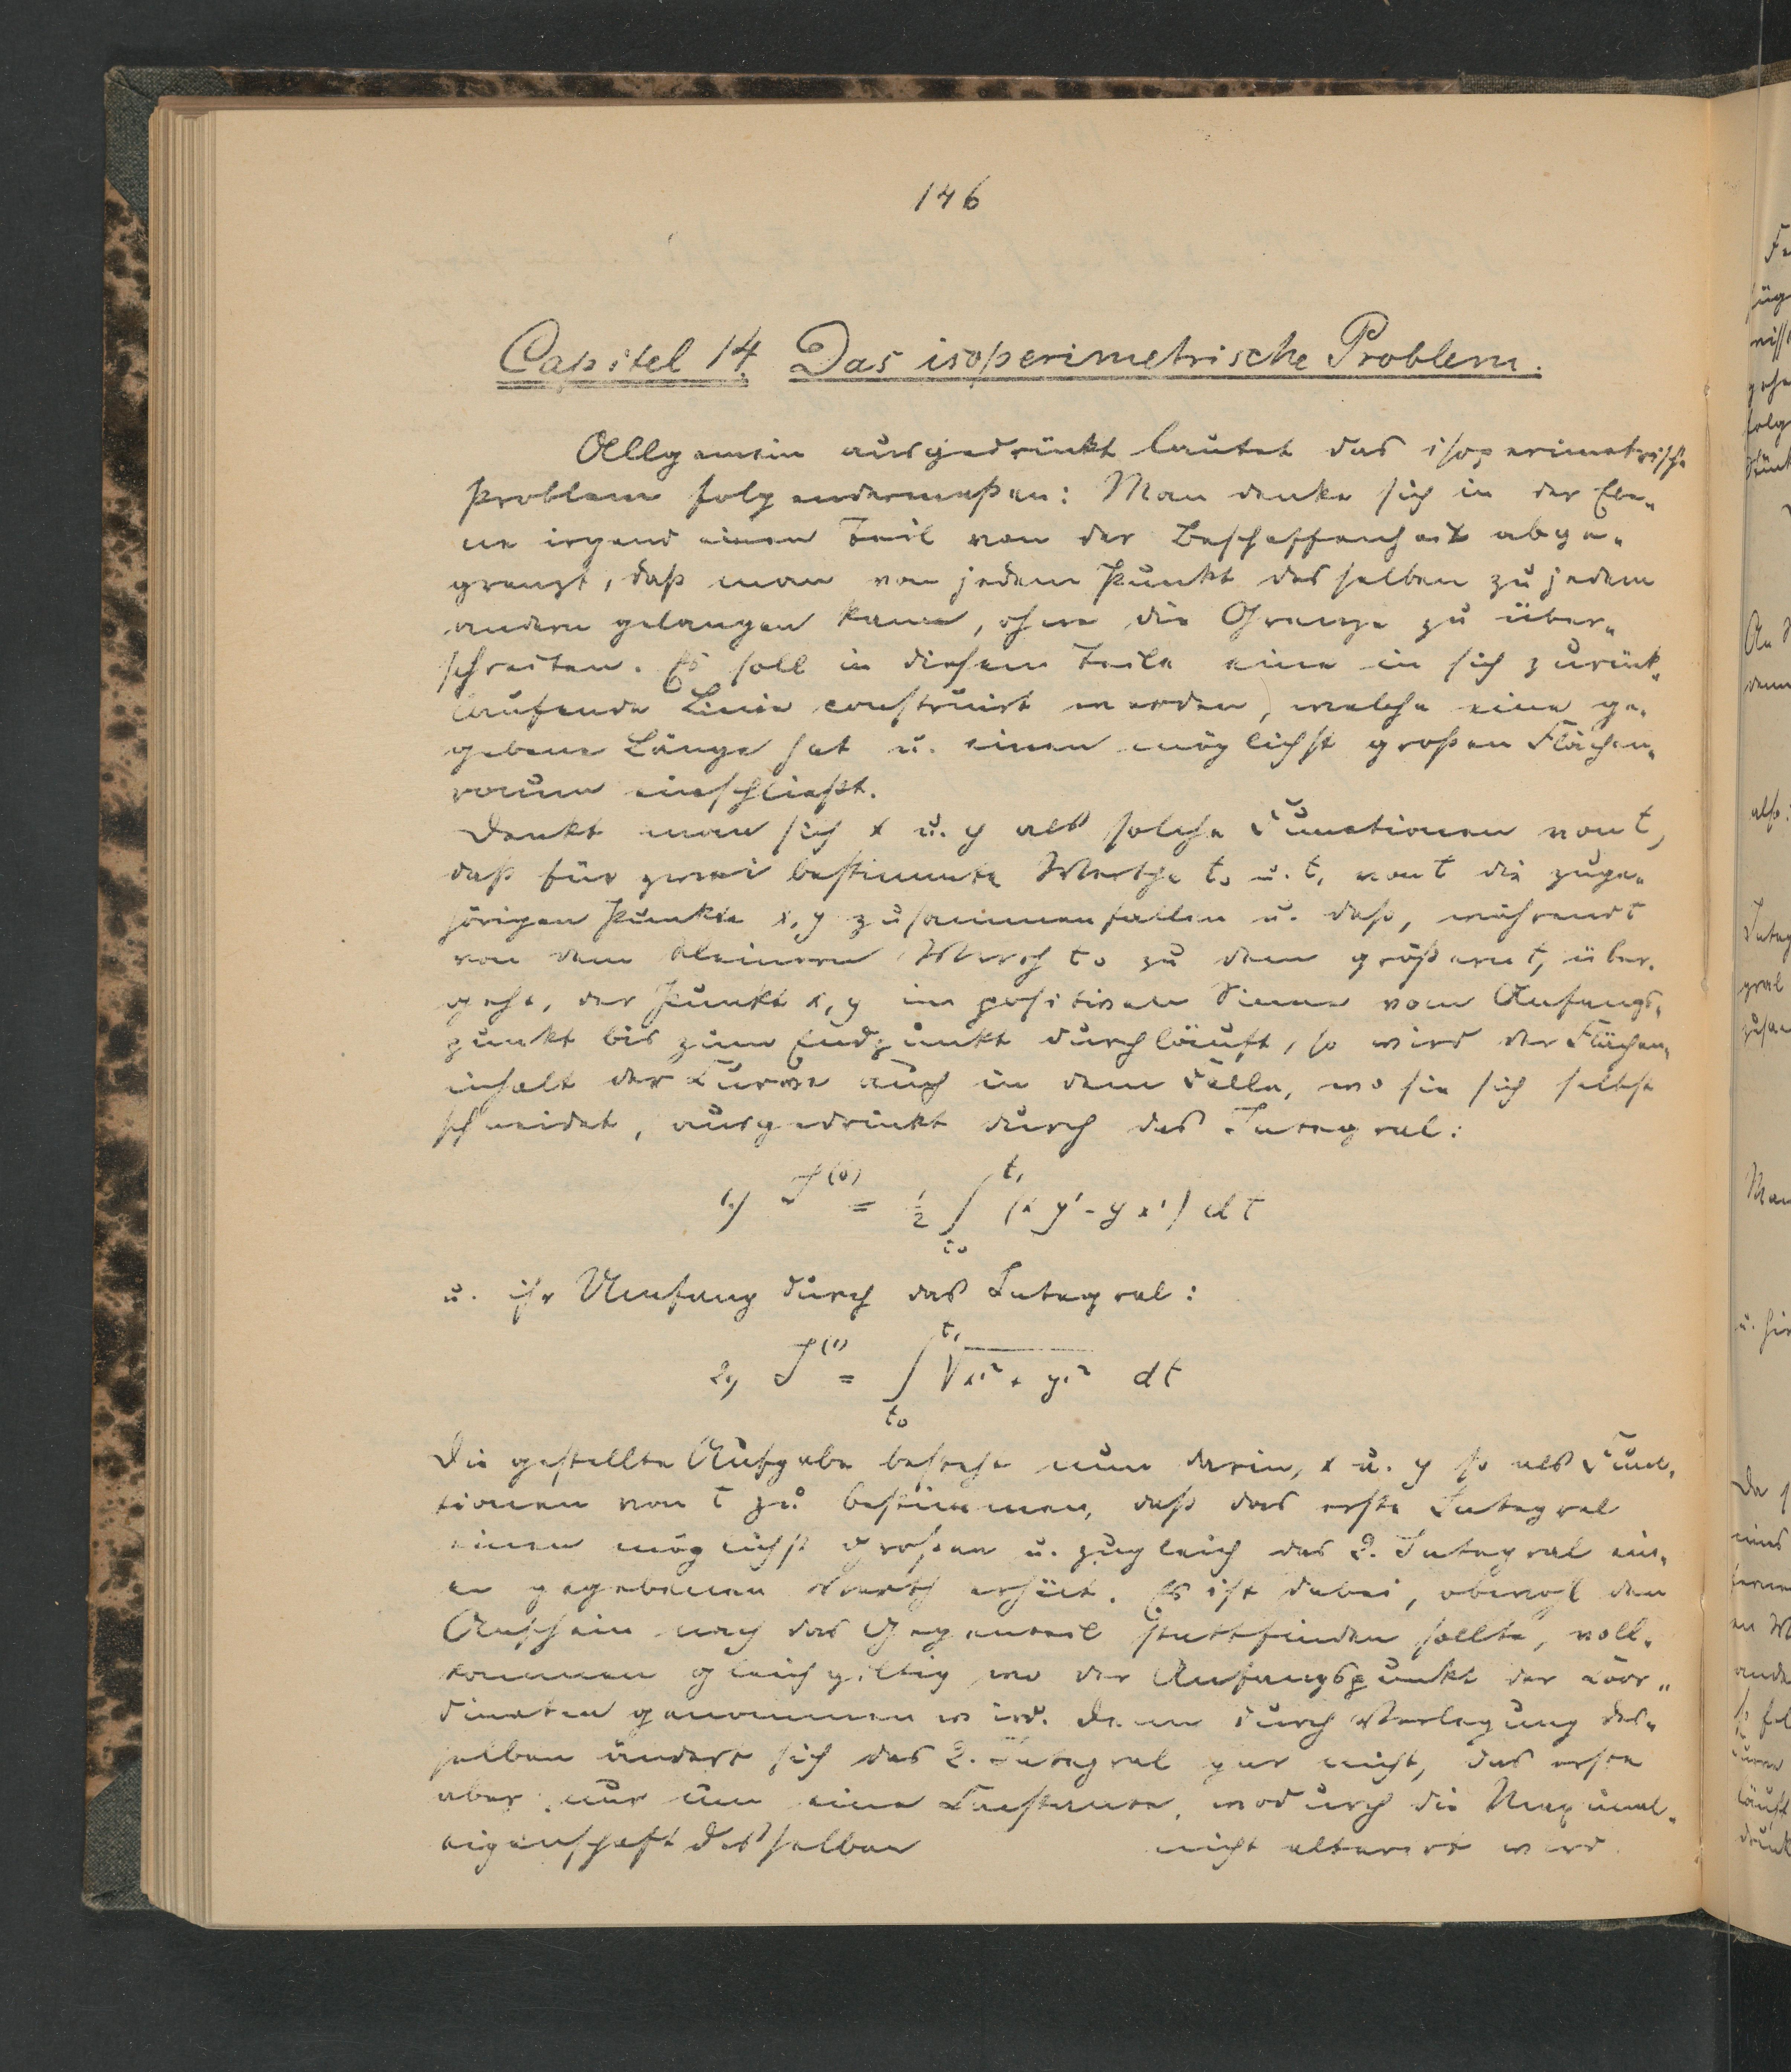 146
Capitel 14. Das isoperimetrische Problem.
Allgemein ausgedrückt lautet das isoperimetrische
Problem folgendermaßen: Man denke sich in der Ebe-
ne irgend einen Teil von der Beschaffenheit abge-
grenzt, daß man von jedem Punkt desselben zu jedem
andern gelangen kann, ohne die Grenze zu über-
schreiten. Es soll in diesem Teile eine in sich zurück-
laufende Linie construirt werden, welche eine ge-
gebene Länge hat u. einen möglichst großen Flächen-
raum einschließt.
Denkt man sich x u. y als solche Functionen von t,
daß für zwei bestimmte Werthe t₀ u. t₁ von t die zuge-
hörigen Punkte x, y zusammenfallen u. daß, während t
von dem kleinern Werth t₀ zu dem größern t₁ über-
geht, der Punkt x, y im positiven Sinne vom Anfangs-
punkt bis zum Endpunkt durchläuft, so wird der Flächen-
inhalt der Curve auch in dem Falle, wo sie sich selbst
schneidet, ausgedrückt durch das Integral:
1.) J⁽⁰⁾ = ½ ∫_{t₀}^{t₁} (x y' - y x') dt
u. ihr Umfang durch das Integral:
2.) J⁽¹⁾ = ∫_{t₀}^{t₁} √(x'² + y'²) dt
Die gestellte Aufgabe besteht nun darin, x u. y so als Func-
tionen von t zu bestimmen, daß das erste Integral
einen möglichst großen u. zugleich das 2. Integral ein-
en gegebenen Werth erhält. Es ist dabei, obwohl dem
Anschein nach das Gegenteil stattfinden sollte, voll-
kommen gleichgiltig wo der Anfangspunkt der Coor-
dinaten genommen wird. Denn durch Verlegung des-
selben ändert sich das 2. Integral gar nicht, das erste
aber nur um eine Constante, wodurch die Maximal-
eigenschaft desselben nicht alterirt wird.